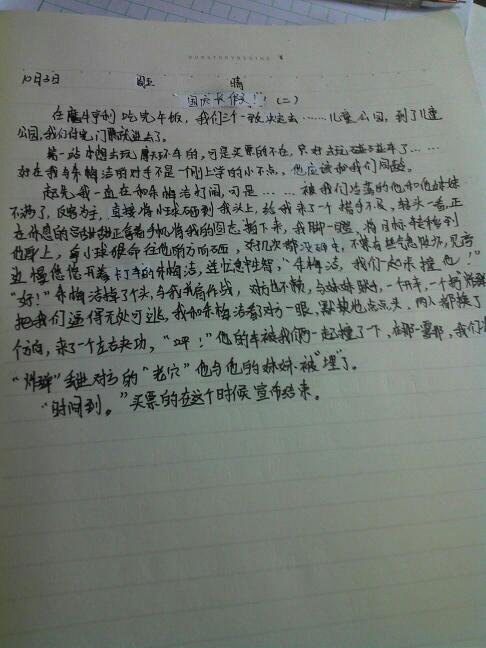 10月3日 周五 晴
国庆长假！（二）
在麾牛亨利吃完午饭，我们三个一致决定去……儿童公园，到了儿童
公园，我们付完门票就进去了。
第一站本想去玩摩天环车的，可是买票的不在，只好去玩碰碰车了……
好在我与朱梅洁的对手不是个刚上学的小不点，他应该和我们同龄。
起先我一直在和朱梅洁打闹，可是……被我们冷落的他和他妹妹
不满了，反客为主，直接将小球砸到我头上，给我来了个措手不及，转头一看，正
在休息的正拿着手机将我的囧态拍下来，我脚一蹬，将目标转移到
他身上，拿小球狠命往他的方向砸，好几次都没砸中，不禁有些气急败坏，见旁
边慢悠悠开着卡丁车的朱梅洁，连忙急中生智，“朱梅洁，我们一起来撞他！”
“好！”朱梅洁掉了个头，与我并肩作战，对方也不赖，与妹妹联手，一个开车，一个扔“炸弹”
把我们逼得无处可逃，我和朱梅洁都对方一眼，默契地点点头，两人都换了
个方向，来了个左右夹攻，“呯！”他的车被我们俩一起撞了一下，在那一霎那，我们
“炸弹”丢进对方的“老穴”他与他的妹妹被“埋”了。
“时间到。”买票的在这个时候宣布结束。